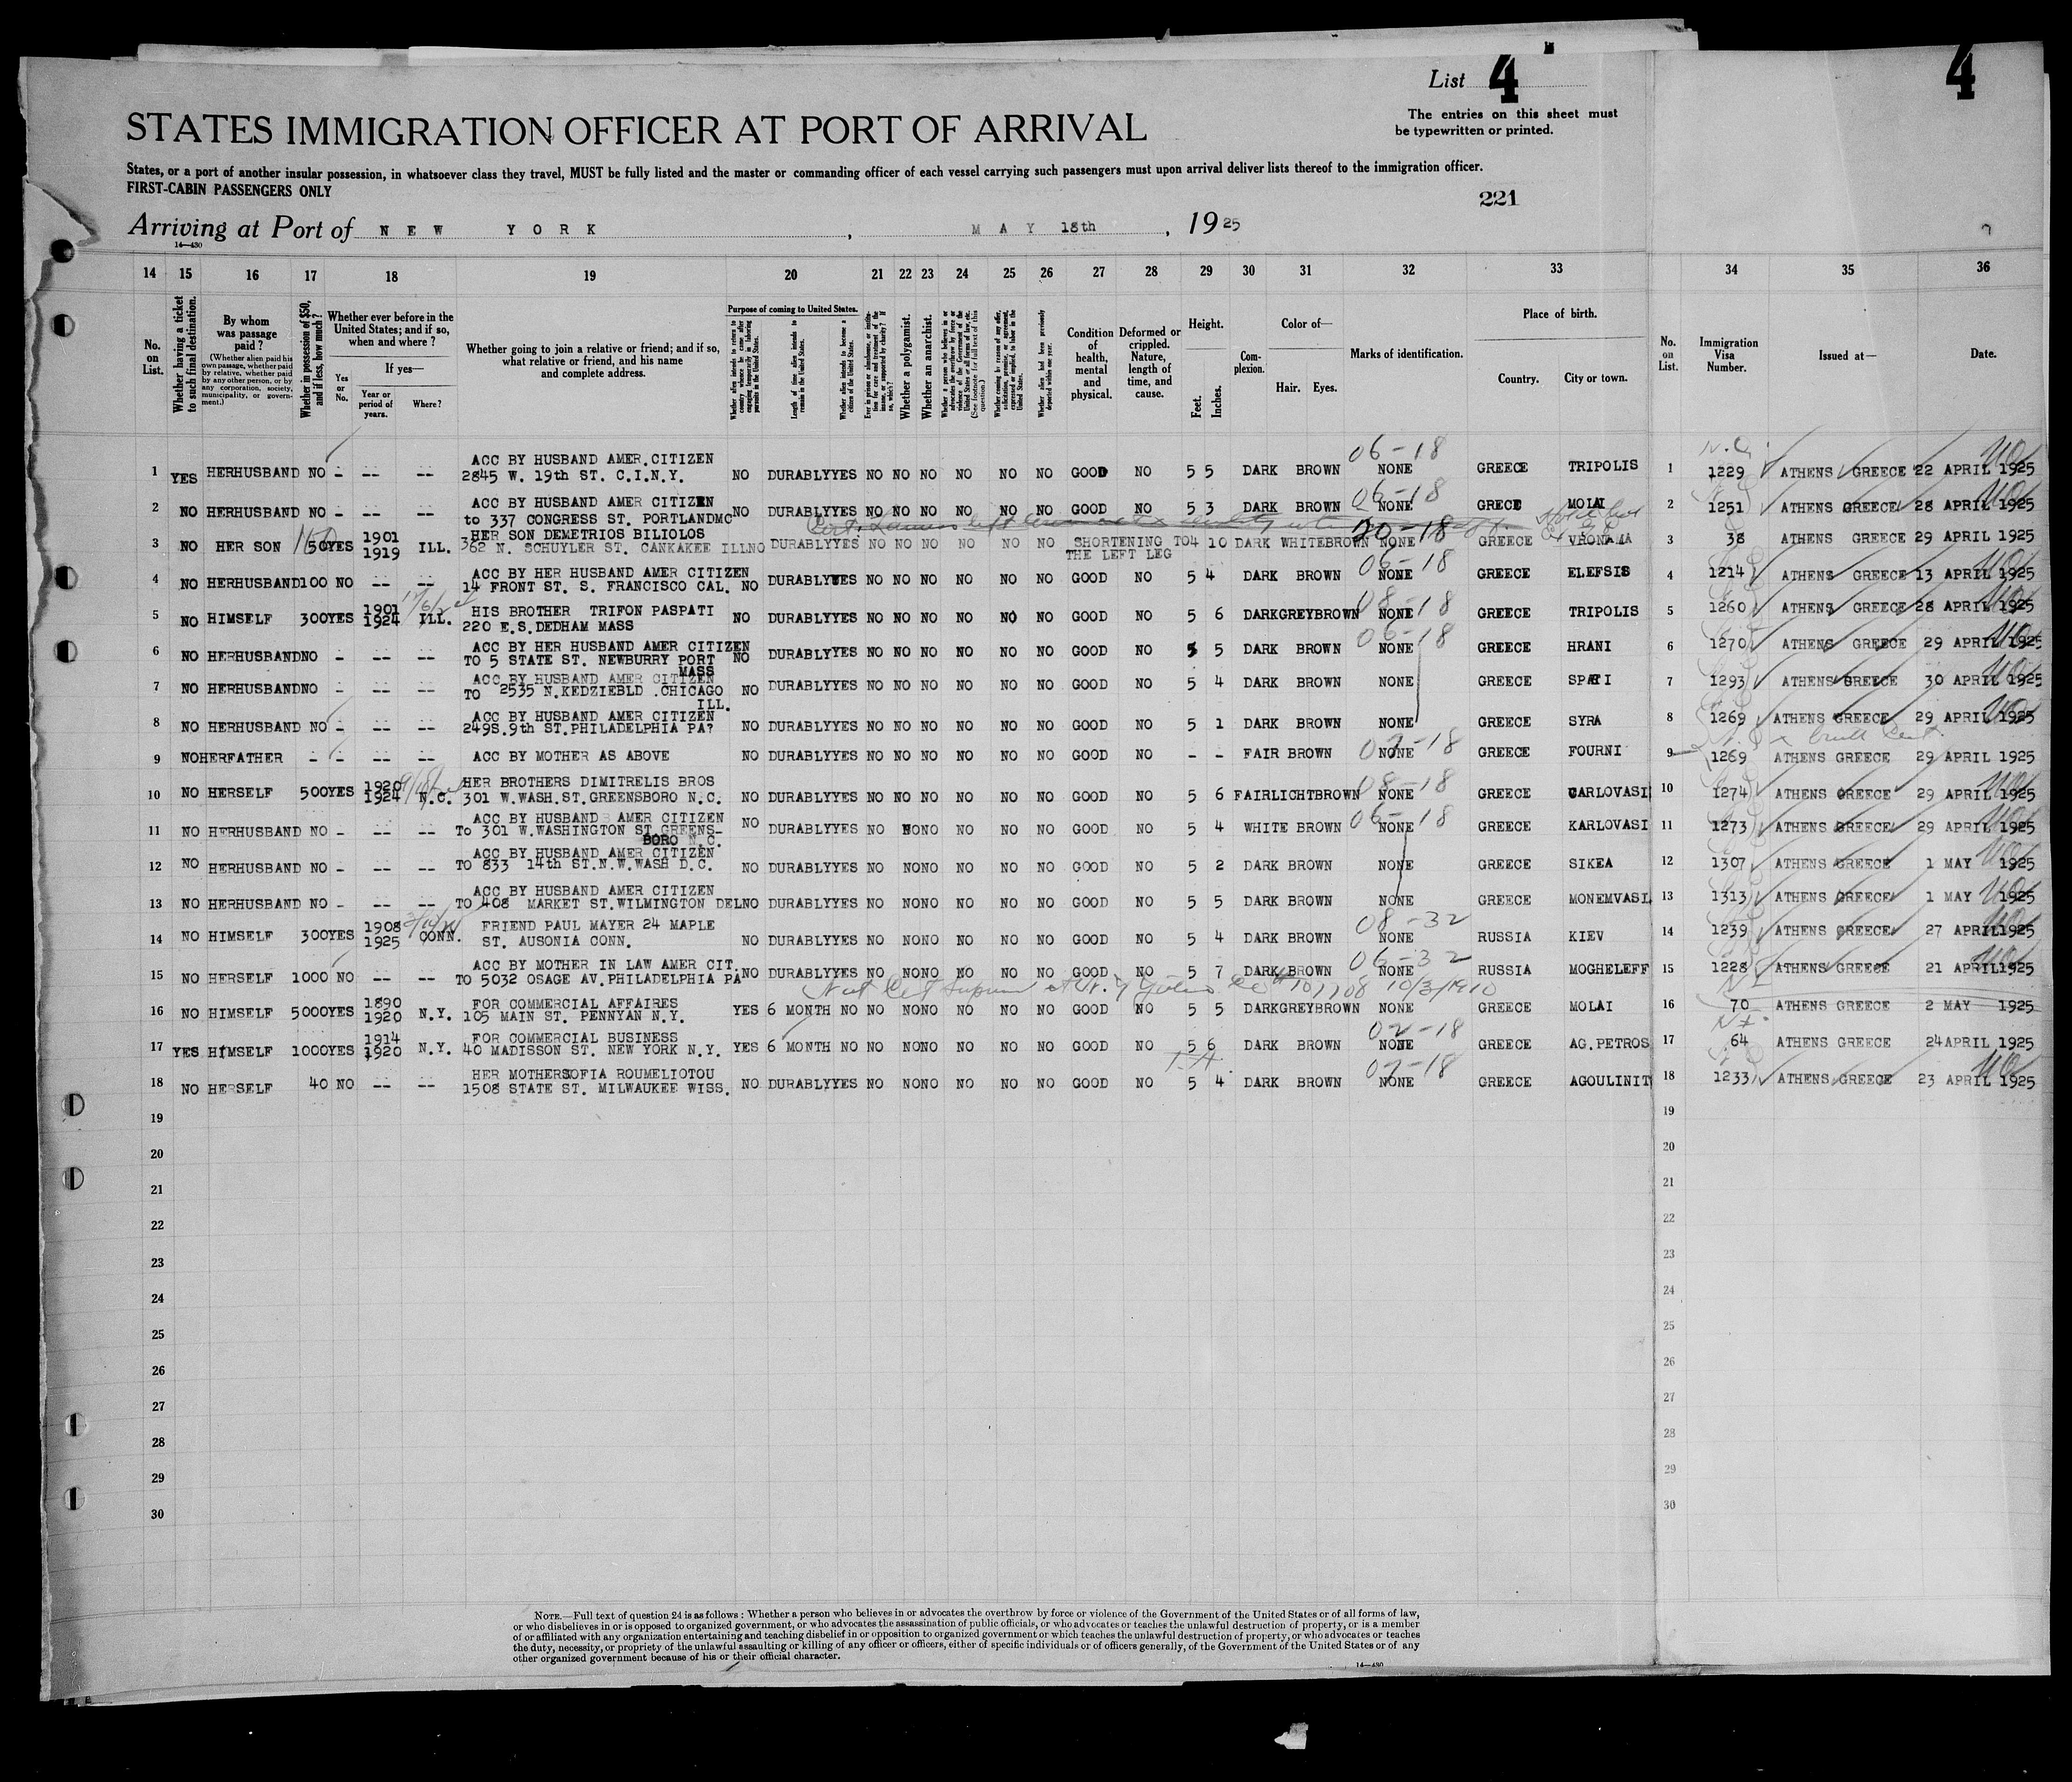 List 4
4
The entries on this sheet must
be typewritten or printed.
STATES IMMIGRATION OFFICER AT PORT OF ARRIVAL
States, or a port of another insular possession, in whatsoever class they travel, MUST be fully listed and the master or commanding officer of each vessel carrying such passengers must upon arrival deliver lists thereof to the immigration officer.
FIRST-CABIN PASSENGERS ONLY
221
Arriving at Port of NEW YORK, MAY 18th, 1925
14—430
14 15 16 17 18 19 20 21 22 23 24 25 26 27 28 29 30 31 32 33 34 35 36
No. on List.
Whether having a ticket to such final destination.
By whom was passage paid?
(Whether alien paid his own passage, whether paid by relative, whether paid by any other person, or by any corporation, society, municipality, or government.)
Whether in possession of $50, and if less, how much?
Whether ever before in the United States; and if so, when and where?
Yes or No.
If yes—
Year or period of years.
Where?
Whether going to join a relative or friend; and if so, what relative or friend, and his name and complete address.
Purpose of coming to United States.
Length of time alien intends to remain in the United States.
Whether alien intends to become a citizen of the United States.
Whether a polygamist.
Whether an anarchist.
Condition of health, mental and physical.
Deformed or crippled. Nature, length of time, and cause.
Height.
Feet.
Inches.
Complexion.
Color of—
Hair. Eyes.
Marks of identification.
Place of birth.
Country.
City or town.
No. on List.
Immigration Visa Number.
Issued at—
Date.
06-18
1 YES HERHUSBAND NO - -- -- ACC BY HUSBAND AMER.CITIZEN 2845 W. 19th ST. C.I.N.Y. NO DURABLYYES NO NO NO NO NO NO GOOD NO 5 5 DARK BROWN NONE GREECE TRIPOLIS 1 1229 ATHENS GREECE 22 APRIL 1925
06-18
2 NO HERHUSBAND NO - -- -- ACC BY HUSBAND AMER CITIZEN to 337 CONGRESS ST. PORTLANDMC NO DURABLYYES NO NO NO NO NO NO GOOD NO 5 3 DARK BROWN NONE GRECE MOLAI 2 1251 ATHENS GREECE 28 APRIL 1925
3 NO HER SON 50YES 1901 1919 ILL. HER SON DEMETRIOS BILIOLOS 362 N. SCHUYLER ST. CANKAKEE ILLNO DURABLYYES NO NO NO NO NO NO SHORTENING TO THE LEFT LEG 4 10 DARK WHITEBROWN NONE GREECE VRONAMA 3 38 ATHENS GREECE 29 APRIL 1925
06-18
4 NO HERHUSBAND100 NO -- -- ACC BY HER HUSBAND AMER CITIZEN 14 FRONT ST. S. FRANCISCO CAL. NO DURABLYYES NO NO NO NO NO NO GOOD NO 5 4 DARK BROWN NONE GREECE ELEFSIS 4 1214 ATHENS GREECE 13 APRIL 1925
08-18
5 NO HIMSELF 300YES 1901 1924 ILL. HIS BROTHER TRIFON PASPATI 220 E.S.DEDHAM MASS NO DURABLYYES NO NO NO NO NO NO GOOD NO 5 6 DARKGREYBROWN NONE GREECE TRIPOLIS 5 1260 ATHENS GREECE 28 APRIL 1925
06-18
6 NO HERHUSBANDNO - -- -- ACC BY HER HUSBAND AMER CITIZEN TO 5 STATE ST. NEWBURRY PORT MASS NO DURABLYYES NO NO NO NO NO NO GOOD NO 5 5 DARK BROWN NONE GREECE HRANI 6 1270 ATHENS GREECE 29 APRIL 1925
7 NO HERHUSBANDNO - -- -- ACC BY HUSBAND AMER CITIZEN TO 2535 N.KEDZIEBLD .CHICAGO ILL. NO DURABLYYES NO NO NO NO NO NO GOOD NO 5 4 DARK BROWN NONE GREECE 7 1293 ATHENS GREECE 30 APRIL 1925
8 NO HERHUSBAND NO - -- -- ACC BY HUSBAND AMER CITIZEN 249S.9th ST.PHILADELPHIA PA? NO DURABLYYES NO NO NO NO NO NO GOOD NO 5 1 DARK BROWN NONE GREECE SYRA 8 1269 ATHENS GREECE 29 APRIL 1925
07-18
9 NOHERFATHER - - -- -- ACC BY MOTHER AS ABOVE NO DURABLYYES NO NO NO NO NO NO GOOD NO - - FAIR BROWN NONE GREECE FOURNI 9 1269 ATHENS GREECE 29 APRIL 1925
08-18
10 NO HERSELF 500YES 1920 1924 N.C. HER BROTHERS DIMITRELIS BROS 301 W.WASH.ST.GREENSBORO N.C. NO DURABLYYES NO NO NO NO NO NO GOOD NO 5 6 FAIRLICHTBROWN NONE GREECE CARLOVASI 10 1274 ATHENS GREECE 29 APRIL 1925
06-18
11 NO HERHUSBAND NO - -- -- ACC BY HUSBAND AMER CITIZEN To 301 W.WASHINGTON ST GREENS- BORO N.C. NO DURABLYYES NO NONO NO NO NO GOOD NO 5 4 WHITE BROWN NONE GREECE KARLOVASI 11 1273 ATHENS GREECE 29 APRIL 1925
12 NO HERHUSBAND NO - -- -- ACC BY HUSBAND AMER CITIZEN TO 833 14th ST.N.W.WASH D.C. NO DURABLYYES NO NONO NO NO NO GOOD NO 5 2 DARK BROWN NONE GREECE SIKEA 12 1307 ATHENS GREECE 1 MAY 1925
13 NO HERHUSBAND NO - -- -- ACC BY HUSBAND AMER CITIZEN TO 408 MARKET ST.WILMINGTON DELNO DURABLYYES NO NONO NO NO NO GOOD NO 5 5 DARK BROWN NONE GREECE MONEMVASI 13 1313 ATHENS GREECE 1 MAY 1925
08-32
14 NO HIMSELF 300YES 1908 1925 CONN. FRIEND PAUL MAYER 24 MAPLE ST. AUSONIA CONN. NO DURABLYYES NO NONO NO NO NO GOOD NO 5 4 DARK BROWN NONE RUSSIA KIEV 14 1239 ATHENS GREECE 27 APRIL1925
06-32
15 NO HERSELF 1000 NO -- -- ACC BY MOTHER IN LAW AMER CIT. TO 5032 OSAGE AV.PHILADELPHIA PA NO DURABLYYES NO NONO NO NO NO GOOD NO 5 7 DARK BROWN NONE RUSSIA MOGHELEFF 15 1228 ATHENS GREECE 21 APRIL1925
16 NO HIMSELF 5000YES 1890 1920 N.Y. FOR COMMERCIAL AFFAIRES 105 MAIN ST. PENNYAN N.Y. YES 6 MONTH NO NO NONO NO NO NO GOOD NO 5 5 DARKGREYBROWN NONE GREECE MOLAI 16 70 ATHENS GREECE 2 MAY 1925
02-18
17 YES HIMSELF 1000YES 1914 1920 N.Y. FOR COMMERCIAL BUSINESS 40 MADISSON ST. NEW YORK N.Y. YES 6 MONTH NO NO NONO NO NO NO GOOD NO 5 6 DARK BROWN NONE GREECE AG.PETROS 17 64 ATHENS GREECE 24APRIL 1925
07-18
18 NO HERSELF 40 NO -- -- HER MOTHERSOFIA ROUMELIOTOU 1508 STATE ST. MILWAUKEE WISS. NO DURABLYYES NO NONO NO NO NO GOOD NO 5 4 DARK BROWN NONE GREECE AGOULINIT 18 1233 ATHENS GREECE 23 APRIL 1925
19 19
20 20
21 21
22 22
23 23
24 24
25 25
26 26
27 27
28 28
29 29
30 30
NOTE.—Full text of question 24 is as follows: Whether a person who believes in or advocates the overthrow by force or violence of the Government of the United States or of all forms of law,
or who disbelieves in or is opposed to organized government, or who advocates the assassination of public officials, or who advocates or teaches the unlawful destruction of property, or is a member
of or affiliated with any organization entertaining and teaching disbelief in or opposition to organized government or which teaches the unlawful destruction of property, or who advocates or teaches
the duty, necessity, or propriety of the unlawful assaulting or killing of any officer or officers, either of specific individuals or of officers generally, of the Government of the United States or of any
other organized government because of his or their official character.
14—430